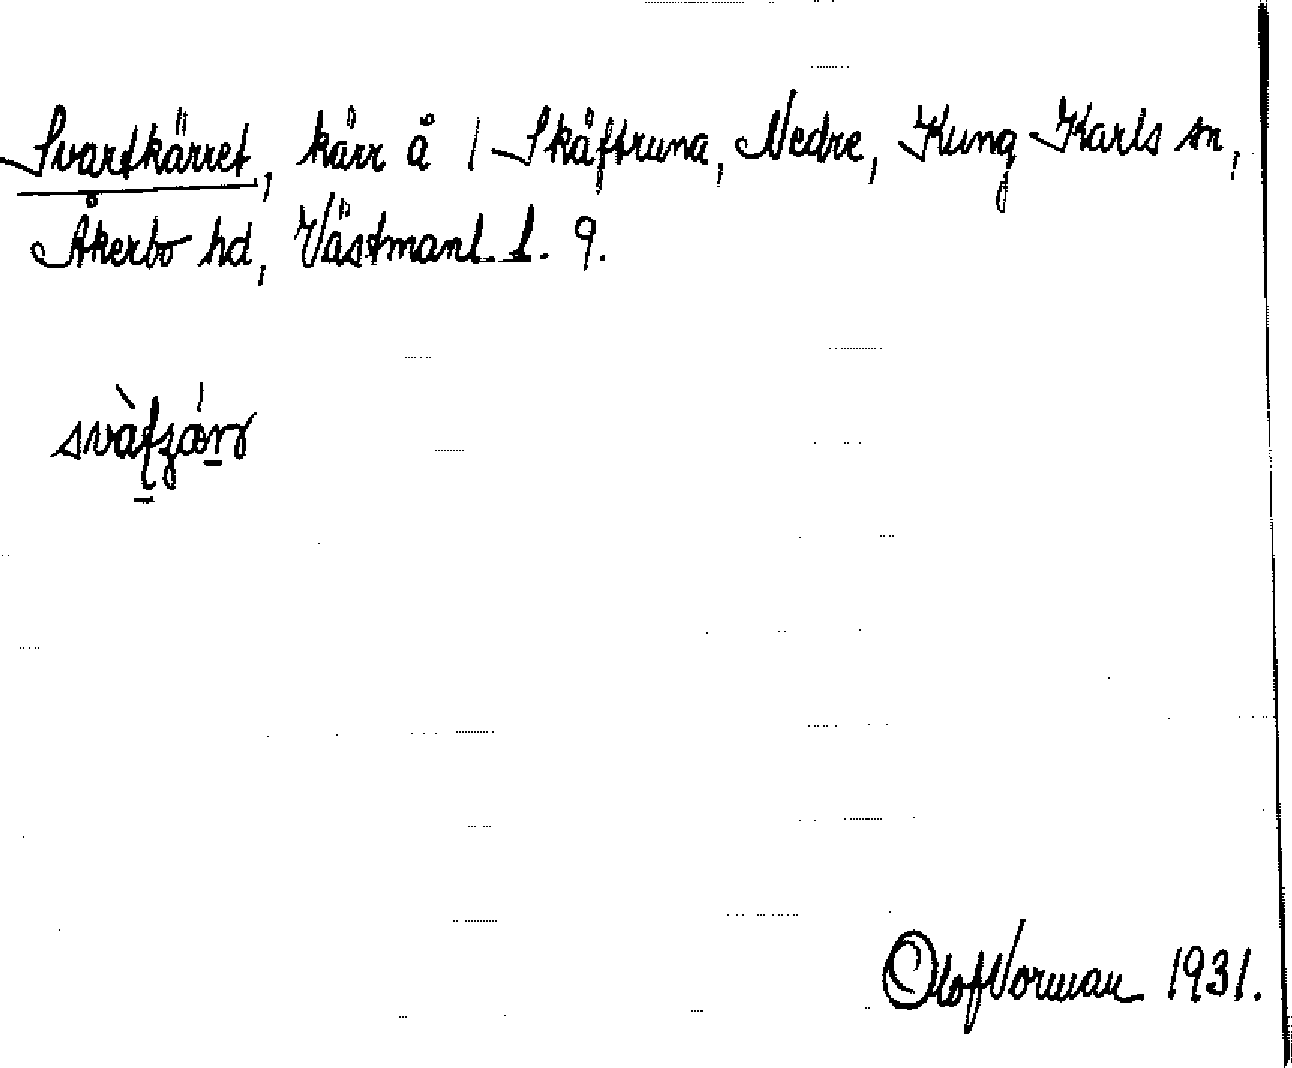 Svartkärret, kärr å 1 Skäftruna, Nedre, Kung Karls sn,
Åkerbo hd, Västmanl. l. 9.
Olof Norman 1931.